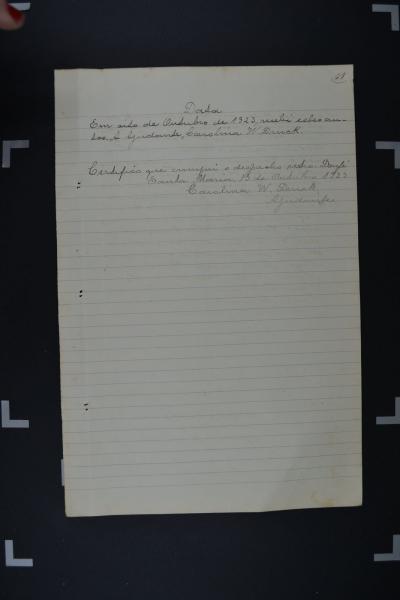 Data
Em oito de Outubro de 1923, recebi estes au-
tos. A Ajudante, Carolina W. Druck.
Certifico que cumpri o despacho retro. Doufé
Santa Maria, 13 de Outubro 1923
Carolina W. Druck,
Ajudante